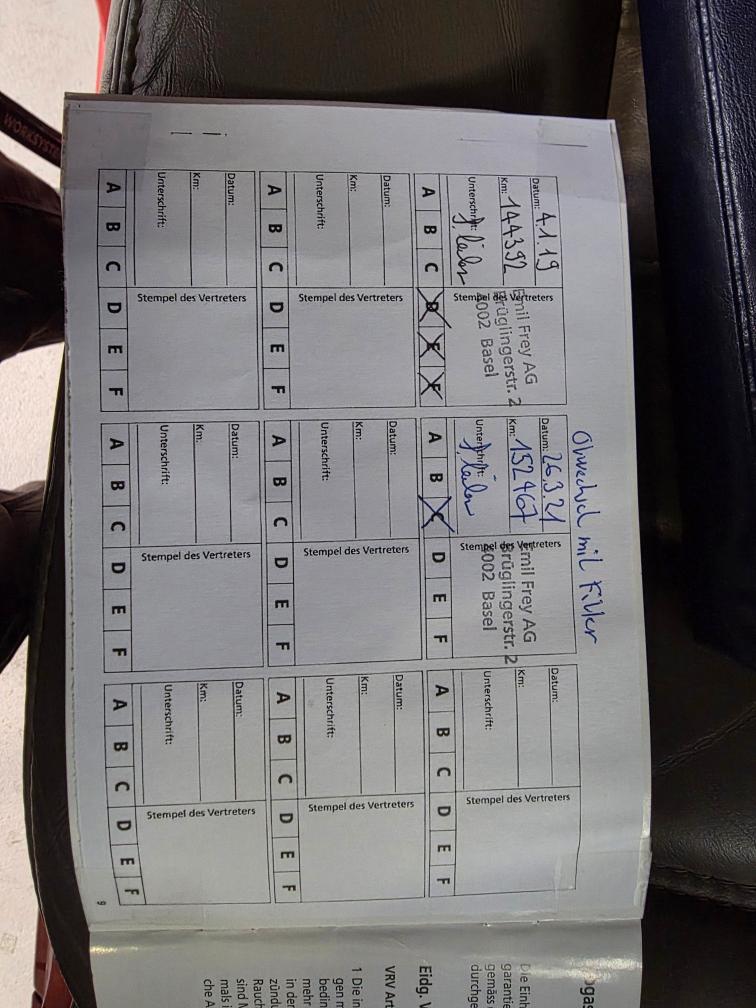 Ölwechsel mit Filter
Datum: 4.1.19
Km: 144392
Unterschrift:
Stempel des Vertreters
Emil Frey AG
Brüglingerstr. 2
4002 Basel
A B C D E F
Datum: 26.3.21
Km: 152467
Unterschrift:
Stempel des Vertreters
Emil Frey AG
Brüglingerstr. 2
4002 Basel
A B C D E F
Datum:
Km:
Unterschrift:
Stempel des Vertreters
A B C D E F
Datum:
Km:
Unterschrift:
Stempel des Vertreters
A B C D E F
Datum:
Km:
Unterschrift:
Stempel des Vertreters
A B C D E F
Datum:
Km:
Unterschrift:
Stempel des Vertreters
A B C D E F
Datum:
Km:
Unterschrift:
Stempel des Vertreters
A B C D E F
Datum:
Km:
Unterschrift:
Stempel des Vertreters
A B C D E F
Datum:
Km:
Unterschrift:
Stempel des Vertreters
A B C D E F
9
Die Einh
garanti
gemäss
durchge
Eidg. V
VRV Art
1 Die in
gen m
bedin
mehr
in der
zünd
Rauch
sind A
mals i
che A
WORKSYST